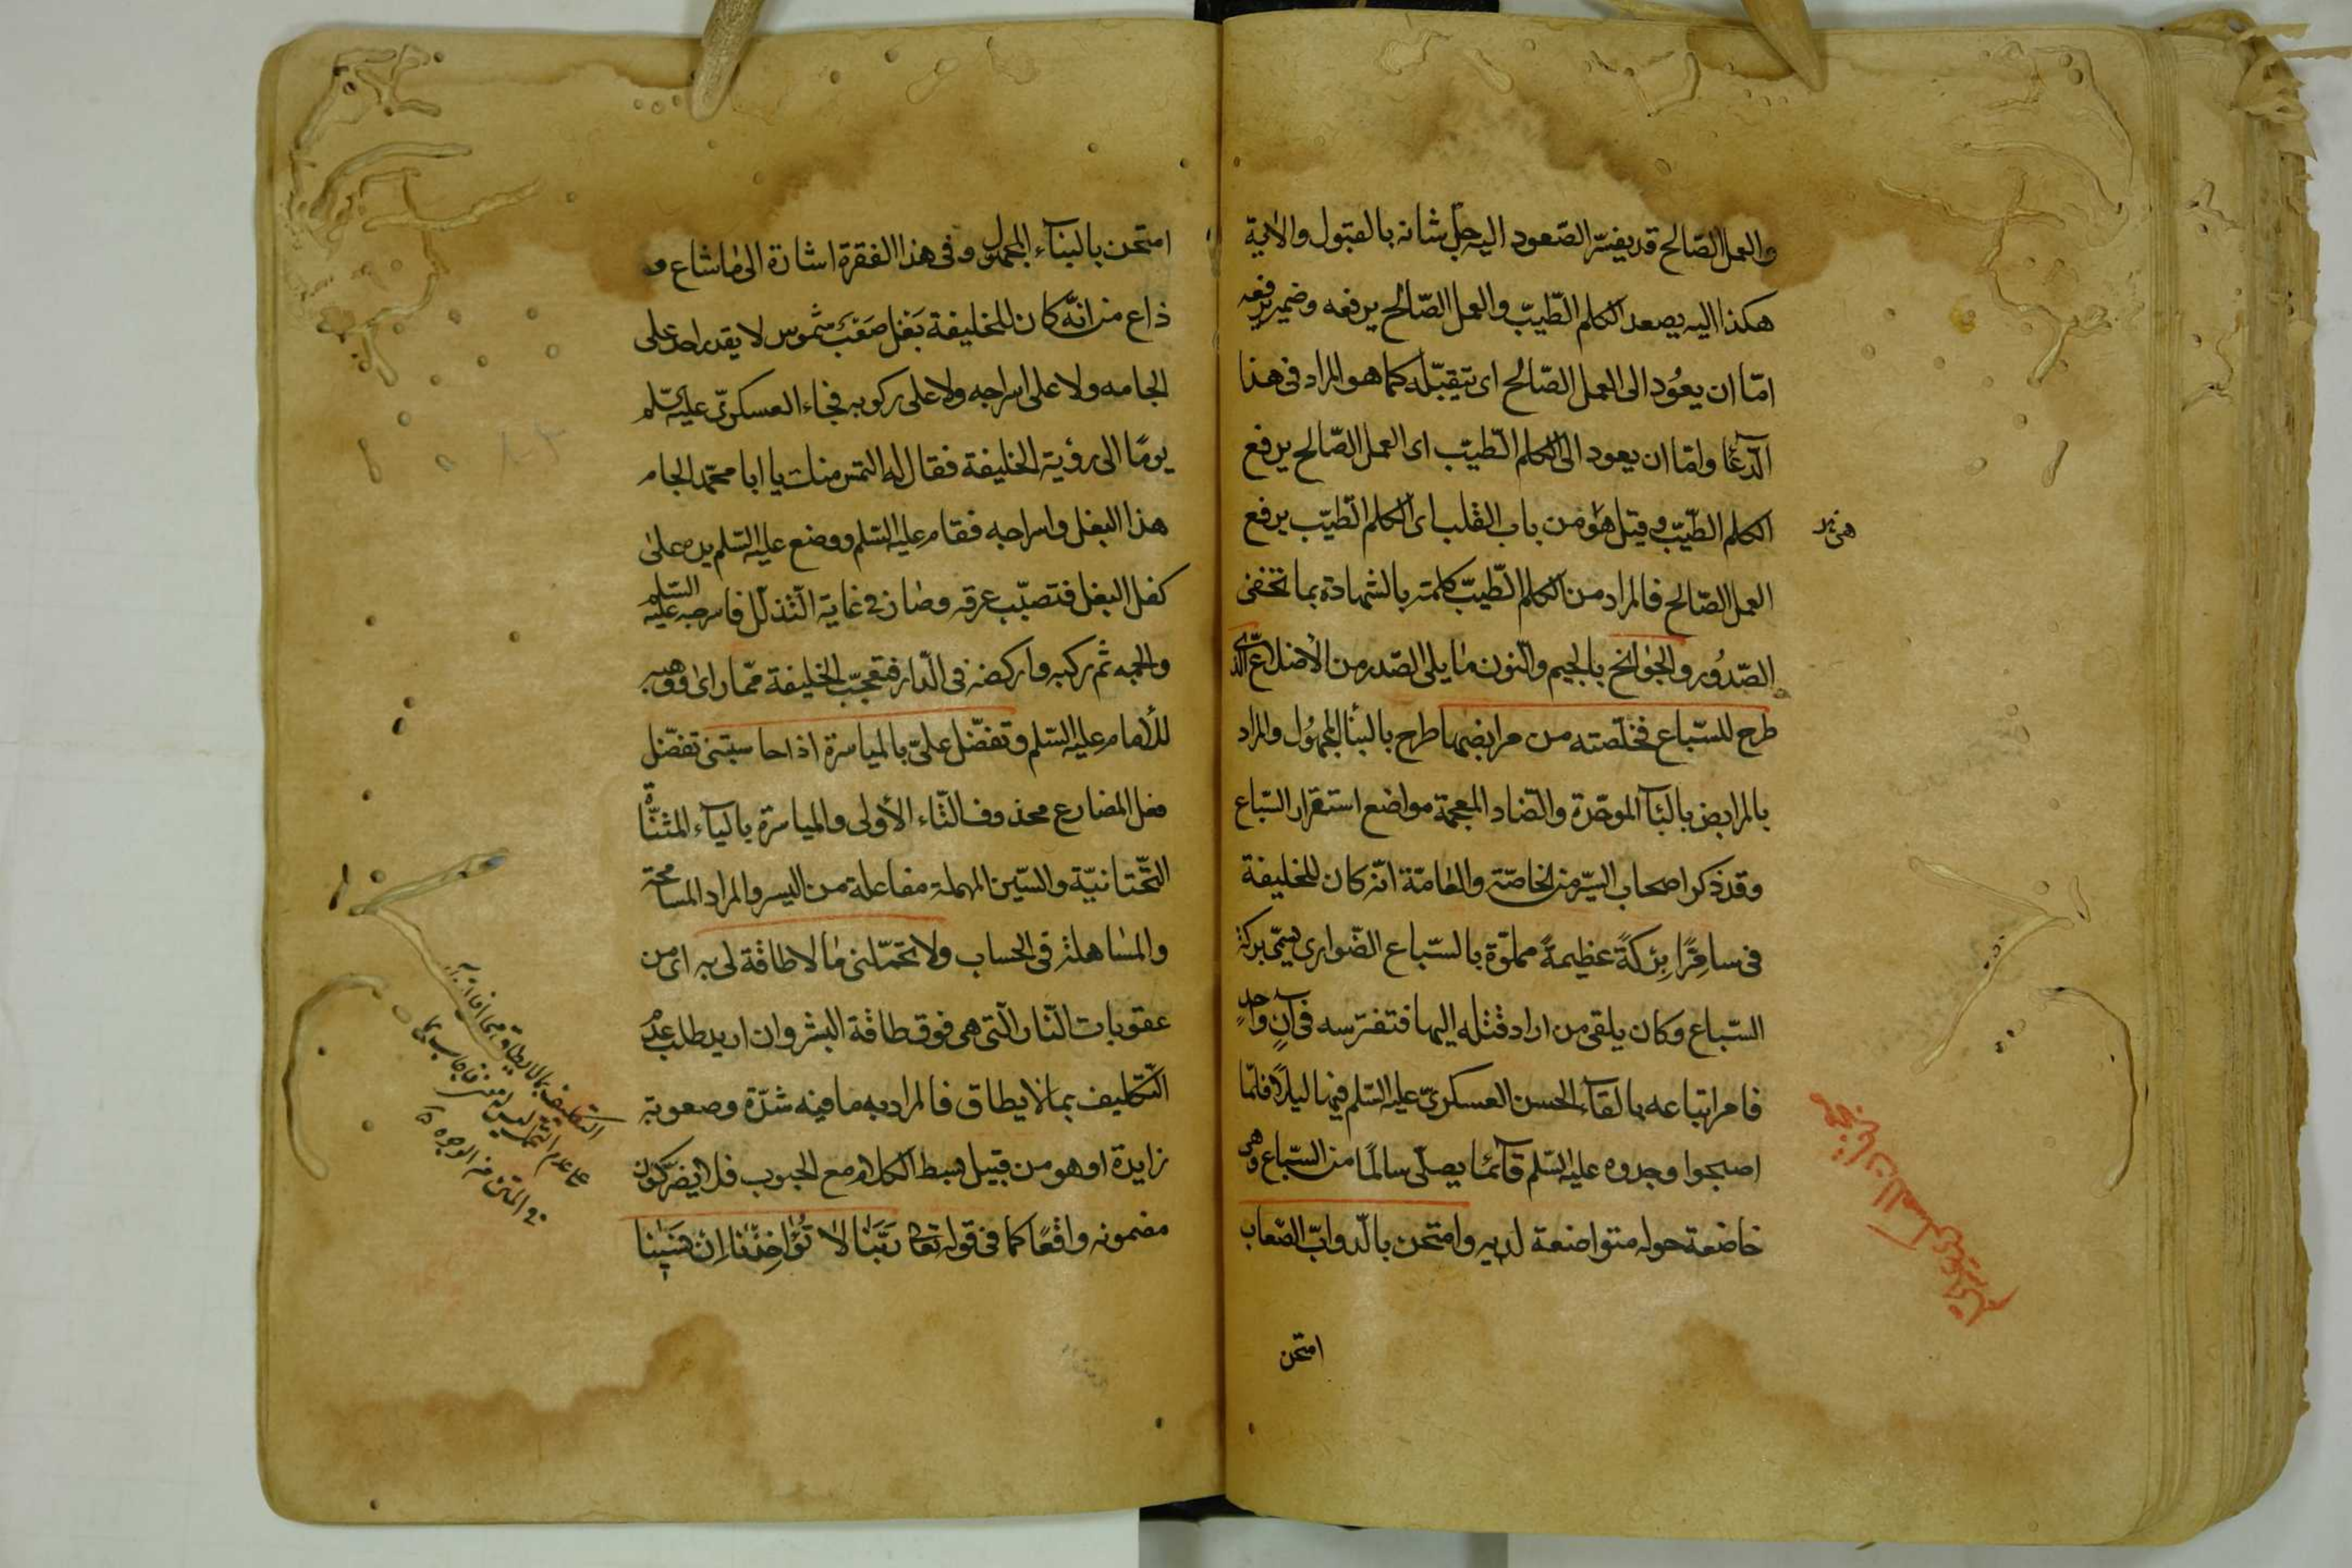 والعمل الصّالح قد يفسّر الصّعود اليه جلّ شانه بالقبول والاٰية
هكذا اليه يصعد الكلم الطّيّب والعمل الصّالح يرفعه وضمير يرفعه
امّا ان يعُود الى العمل الصّالح اى يتقبّله كما هو المراد فى هذا
الدّعآ وامّا ان يعود الى الكلم الطّيّب اى العمل الصّالح يرفع
الكلم الطّيّب وقيل هو من باب القلب اى الكلم الطّيّب يرفع
العمل الصّالح فالمراد من الكلم الطّيّب كلمته بالشهادة بما تخفى
الصّدُور والجوانح بالجيم والنّون ما يلى الصّدر من الأضلاع
طرح للسّباع فخلّصته من مرابضها طرح بالبنأ للمجهُول والمراد
بالمرابض بالبآء الموحّدة والضّاد المعجمة مواضع استقرار السّباع
وقد ذكر اصحاب السّير من الخاصّة والعامّة انّه كان للخليفة
فى سامرّا بِرْكَةً عظيمةً مملوّة بالسّباع الضّوارى يسمّى بركة
السّباع وكان يلقى من اراد قتله اليها فتفترسه فى آنٍ واحدٍ
فامر اتباعه بالقآء الحسن العسكرىّ عليه السّلم فيها ليلاً فلمّا
اصبحوا وجدوه عليه السّلم قآئما يصلّى سالمًا من السّباع وهى
خاضعة حوله متواضعة لديه وامتحن بالدّوابّ الصّعاب
امتحن
امتحن بالبنآء للمجهول وفى هذا الفقرة اشارة الى ما شاع و
ذاع من انّه كان للخليفة بَغْل صَعْبٌ شموس لا يقدر احد على
الجامه ولا على اسراجه ولا على ركوبه فجاء العسكرىّ عليه السّلم
يومًا الى رؤية الخليفة فقال له التمس منك يا ابا محمّد الجام
هذا البغل واسراجه فقام عليه السّلم ووضع عليه السّلم يده على
كفل البغل فتصبّب عرقه وصار فى غاية التّذلّل فاسرجه عليه السّلم
والجمه ثم ركبه واركضه فى الدّار فتعجّب الخليفة ممّا راى ووهبه
للأمام عليه السّلم وتفضّل علىّ بالمياسرة اذا حاسبتنى تفضّل
فعل المضارع محذوف التّاء الأولى والمياسرة بالياء المثنّاة
التّحتانيّة والسّين المهملة مفاعلة من اليسر والمراد المسامحة
والمساهلة فى الحساب ولا تحمّلنى ما لا طاقة لى به اى من
عقوبات النّار الّتى هى فوق طاقة البشر وان اريد طلب عدُم
التّكليف بما لا يطاق فالمراد به ما فيه شدّة وصعوبة
زايدة او هو من قبيل بسط الكلام مع المحبوب فلا يضرّ كون
مضمونه واقعًا كما فى قوله تعا رَبَّنَا لاٰ تُؤٰاخِذْنَا اِنْ نَسٖينٰا